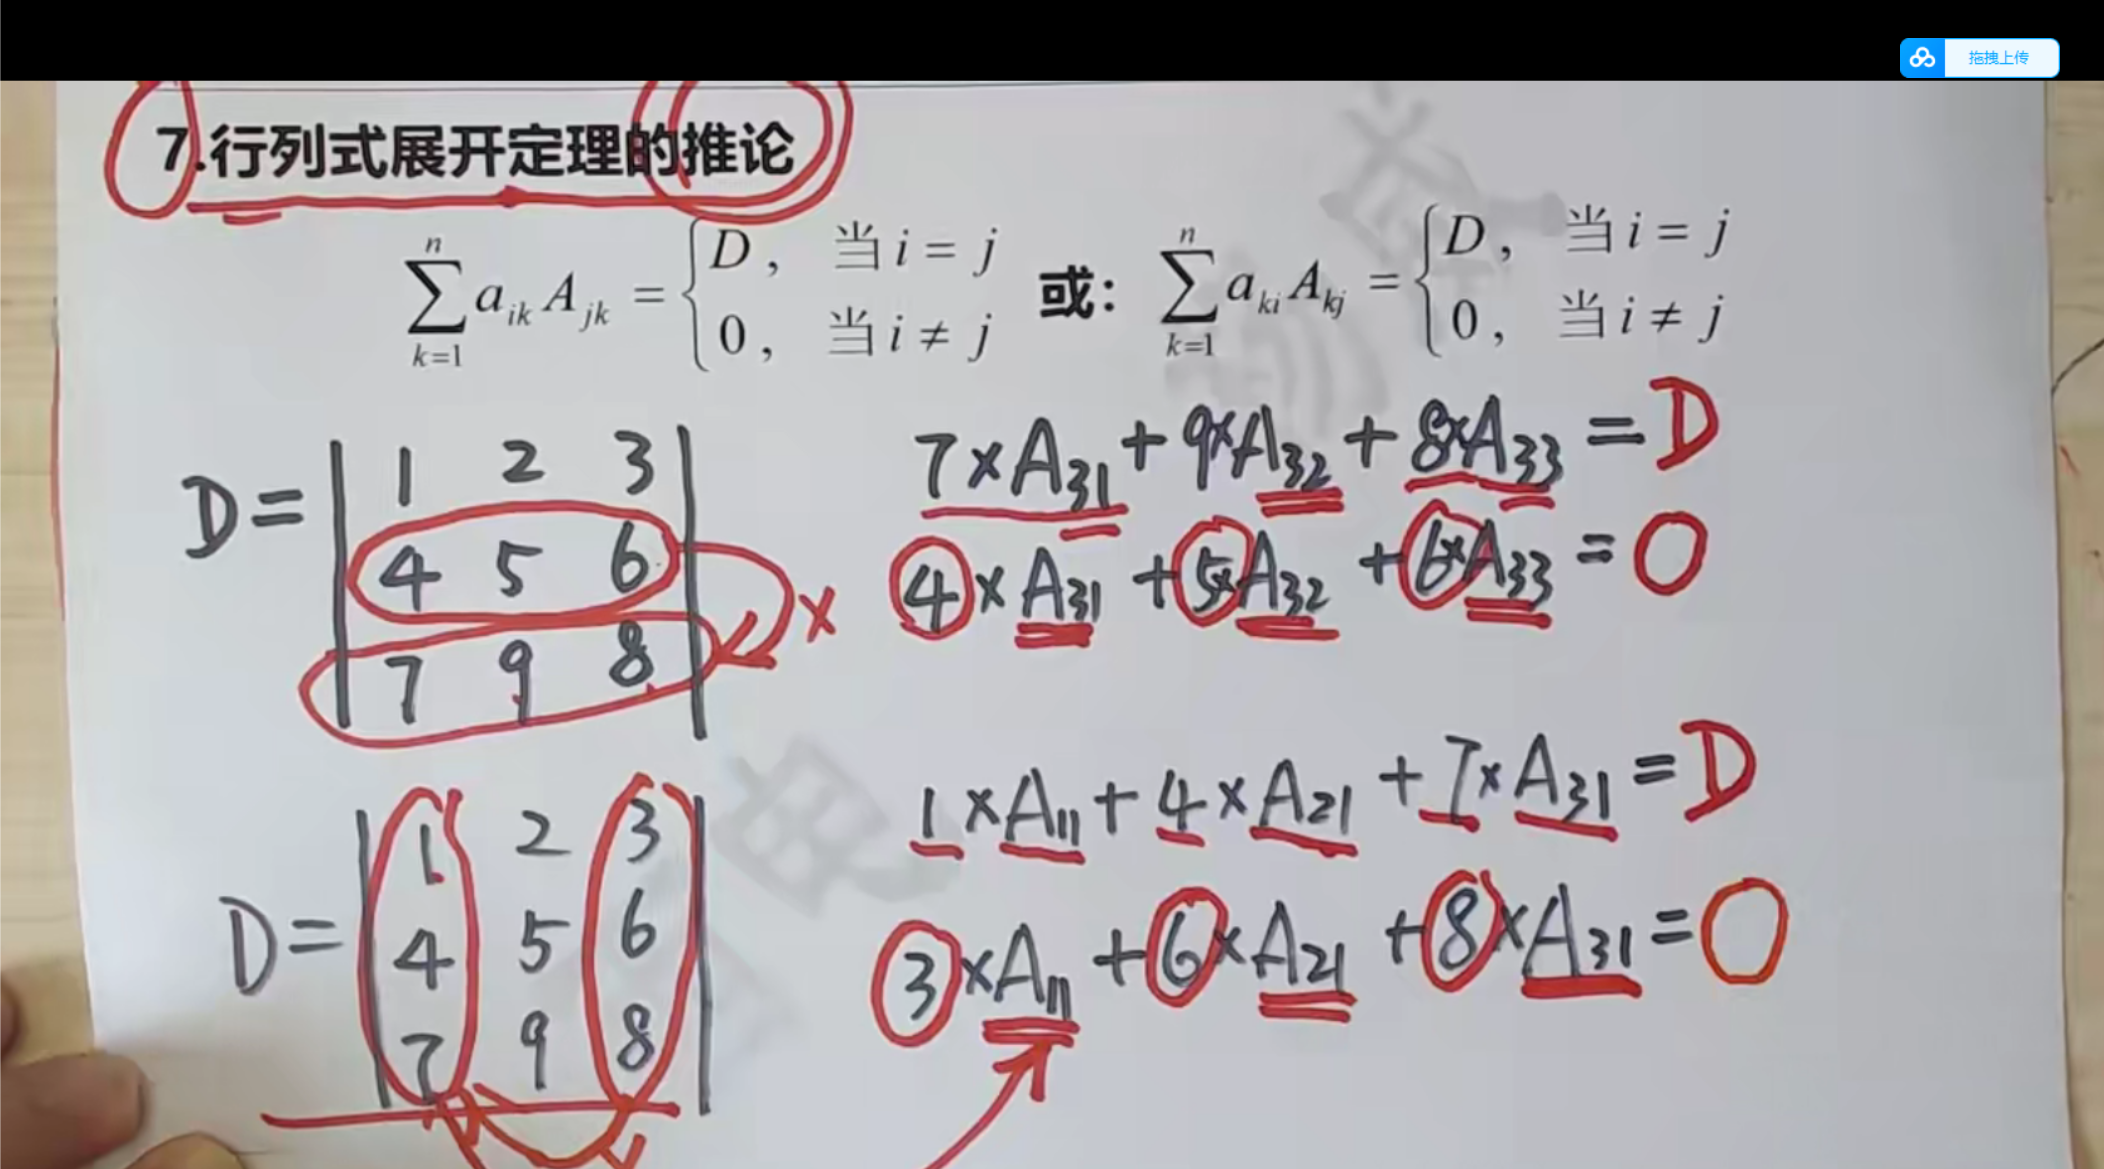 拖拽上传
7.行列式展开定理的推论
n
∑ a_{ik} A_{jk} = { D, 当 i = j
0, 当 i ≠ j
k=1
或:
n
∑ a_{ki} A_{kj} = { D, 当 i = j
0, 当 i ≠ j
k=1
D = | 1 2 3 |
4 5 6
7 9 8
×
7×A31 + 9×A32 + 8×A33 = D
4×A31 + 5×A32 + 6×A33 = 0
D = | 1 2 3 |
4 5 6
7 9 8
1×A11 + 4×A21 + 7×A31 = D
3×A11 + 6×A21 + 8×A31 = 0